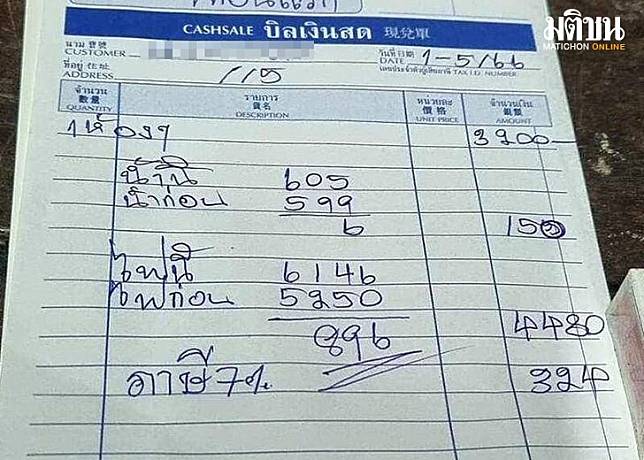 มติชน
MATICHON ONLINE
CASHSALE บิลเงินสด 現兌單
นาม 寶號
CUSTOMER
วันที่ 日期
DATE 1-5/66
ที่อยู่ 住址
ADDRESS 115
เลขประจำตัวผู้เสียภาษี TAX I.D. NUMBER
จำนวน 數量 QUANTITY รายการ 貨名 DESCRIPTION หน่วยละ 價格 UNIT PRICE จำนวนเงิน 銀額 AMOUNT
1ห้อง 3200-
น้ำนี้ 605
น้ำก่อน 599
6 150
ไฟนี้ 6146
ไฟก่อน 5250
896 4480
ภาษี 7% 324